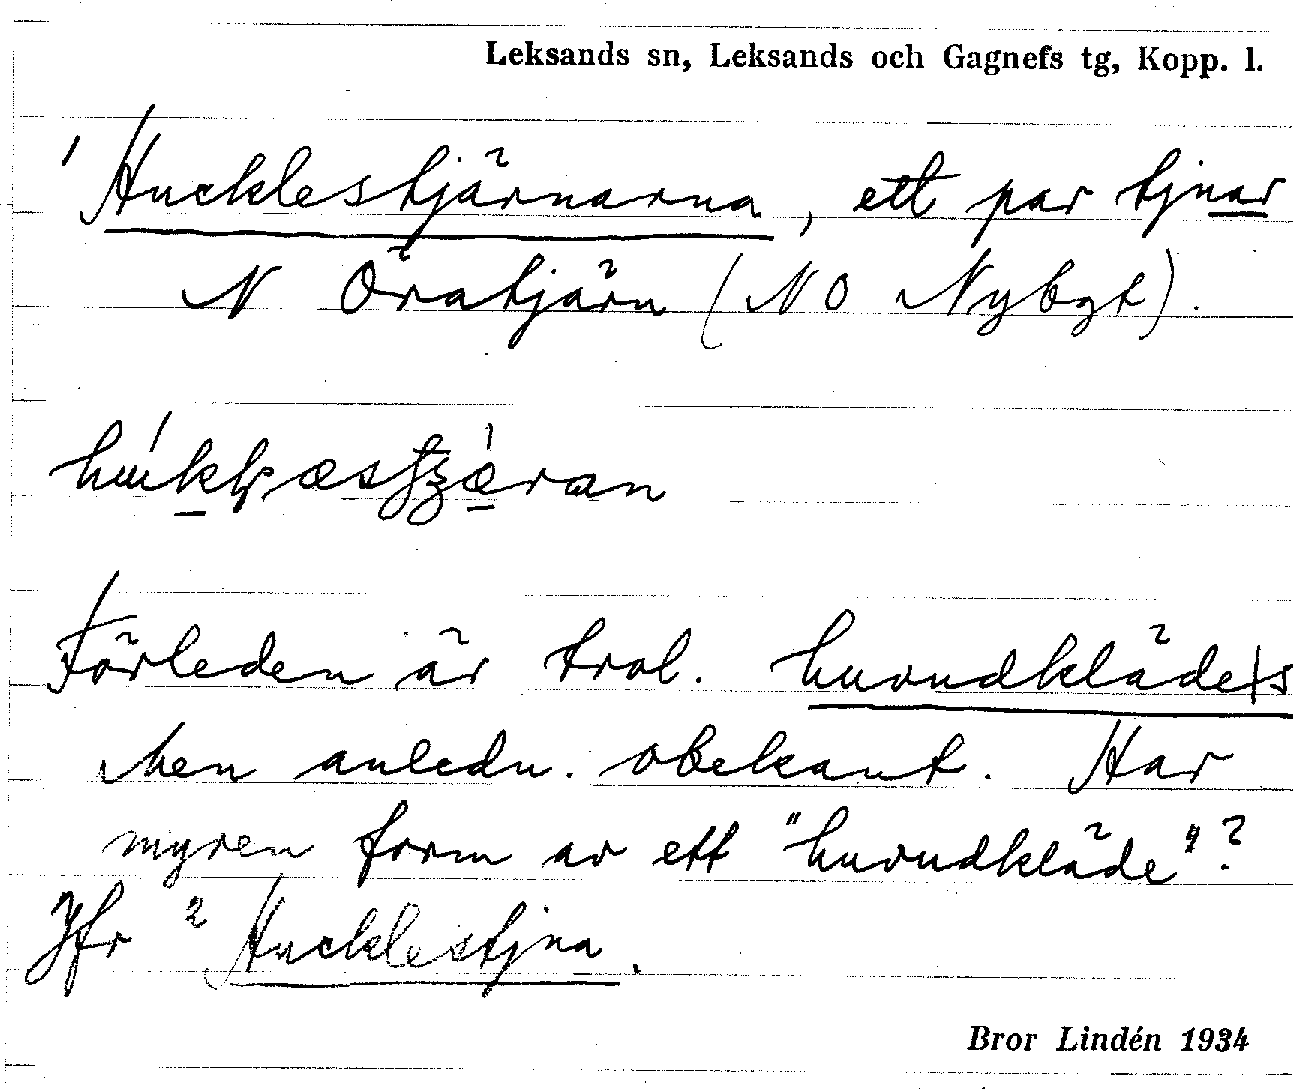 Leksands sn, Leksands och Gagnefs tg, Kopp. l.
1 Hucklestjärnarna, ett par tjnar
N Öratjärn (NO Nybgt).
Förleden är trol. huvudkläde|s
Men anledn. obekant. Har
myren form av ett "huvudkläde"?
Jfr 2 Hucklestjna.
Bror Lindén 1934